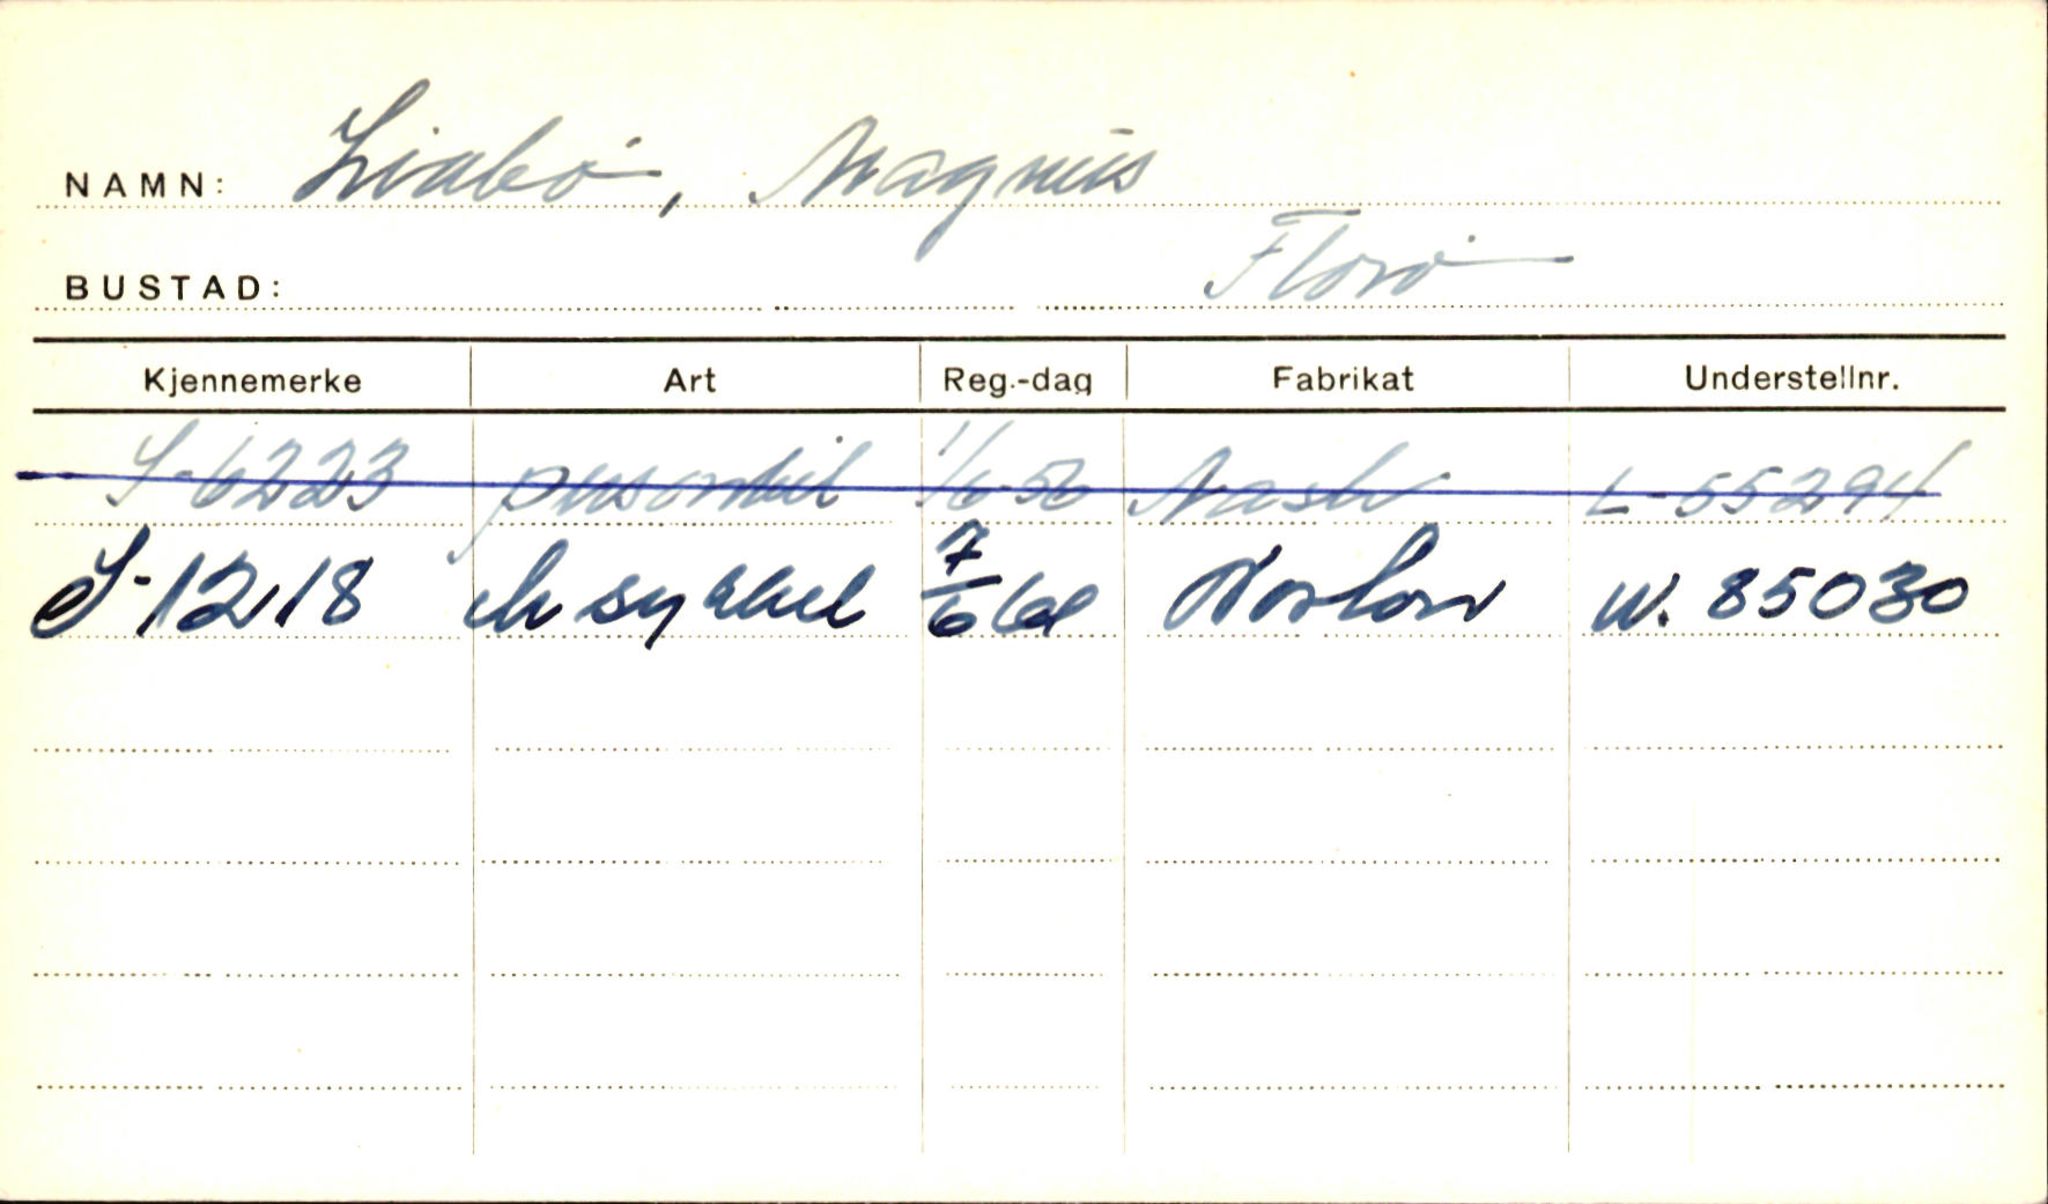 NAMN: Liabø, Magnus
BUSTAD: Florø
Kjennemerke Art Reg.-dag Fabrikat Understellnr.
S-6223 personbil 1/6-56 Nash L-55294
S-1218 m sykkel 7/6 61 Norton W. 85030